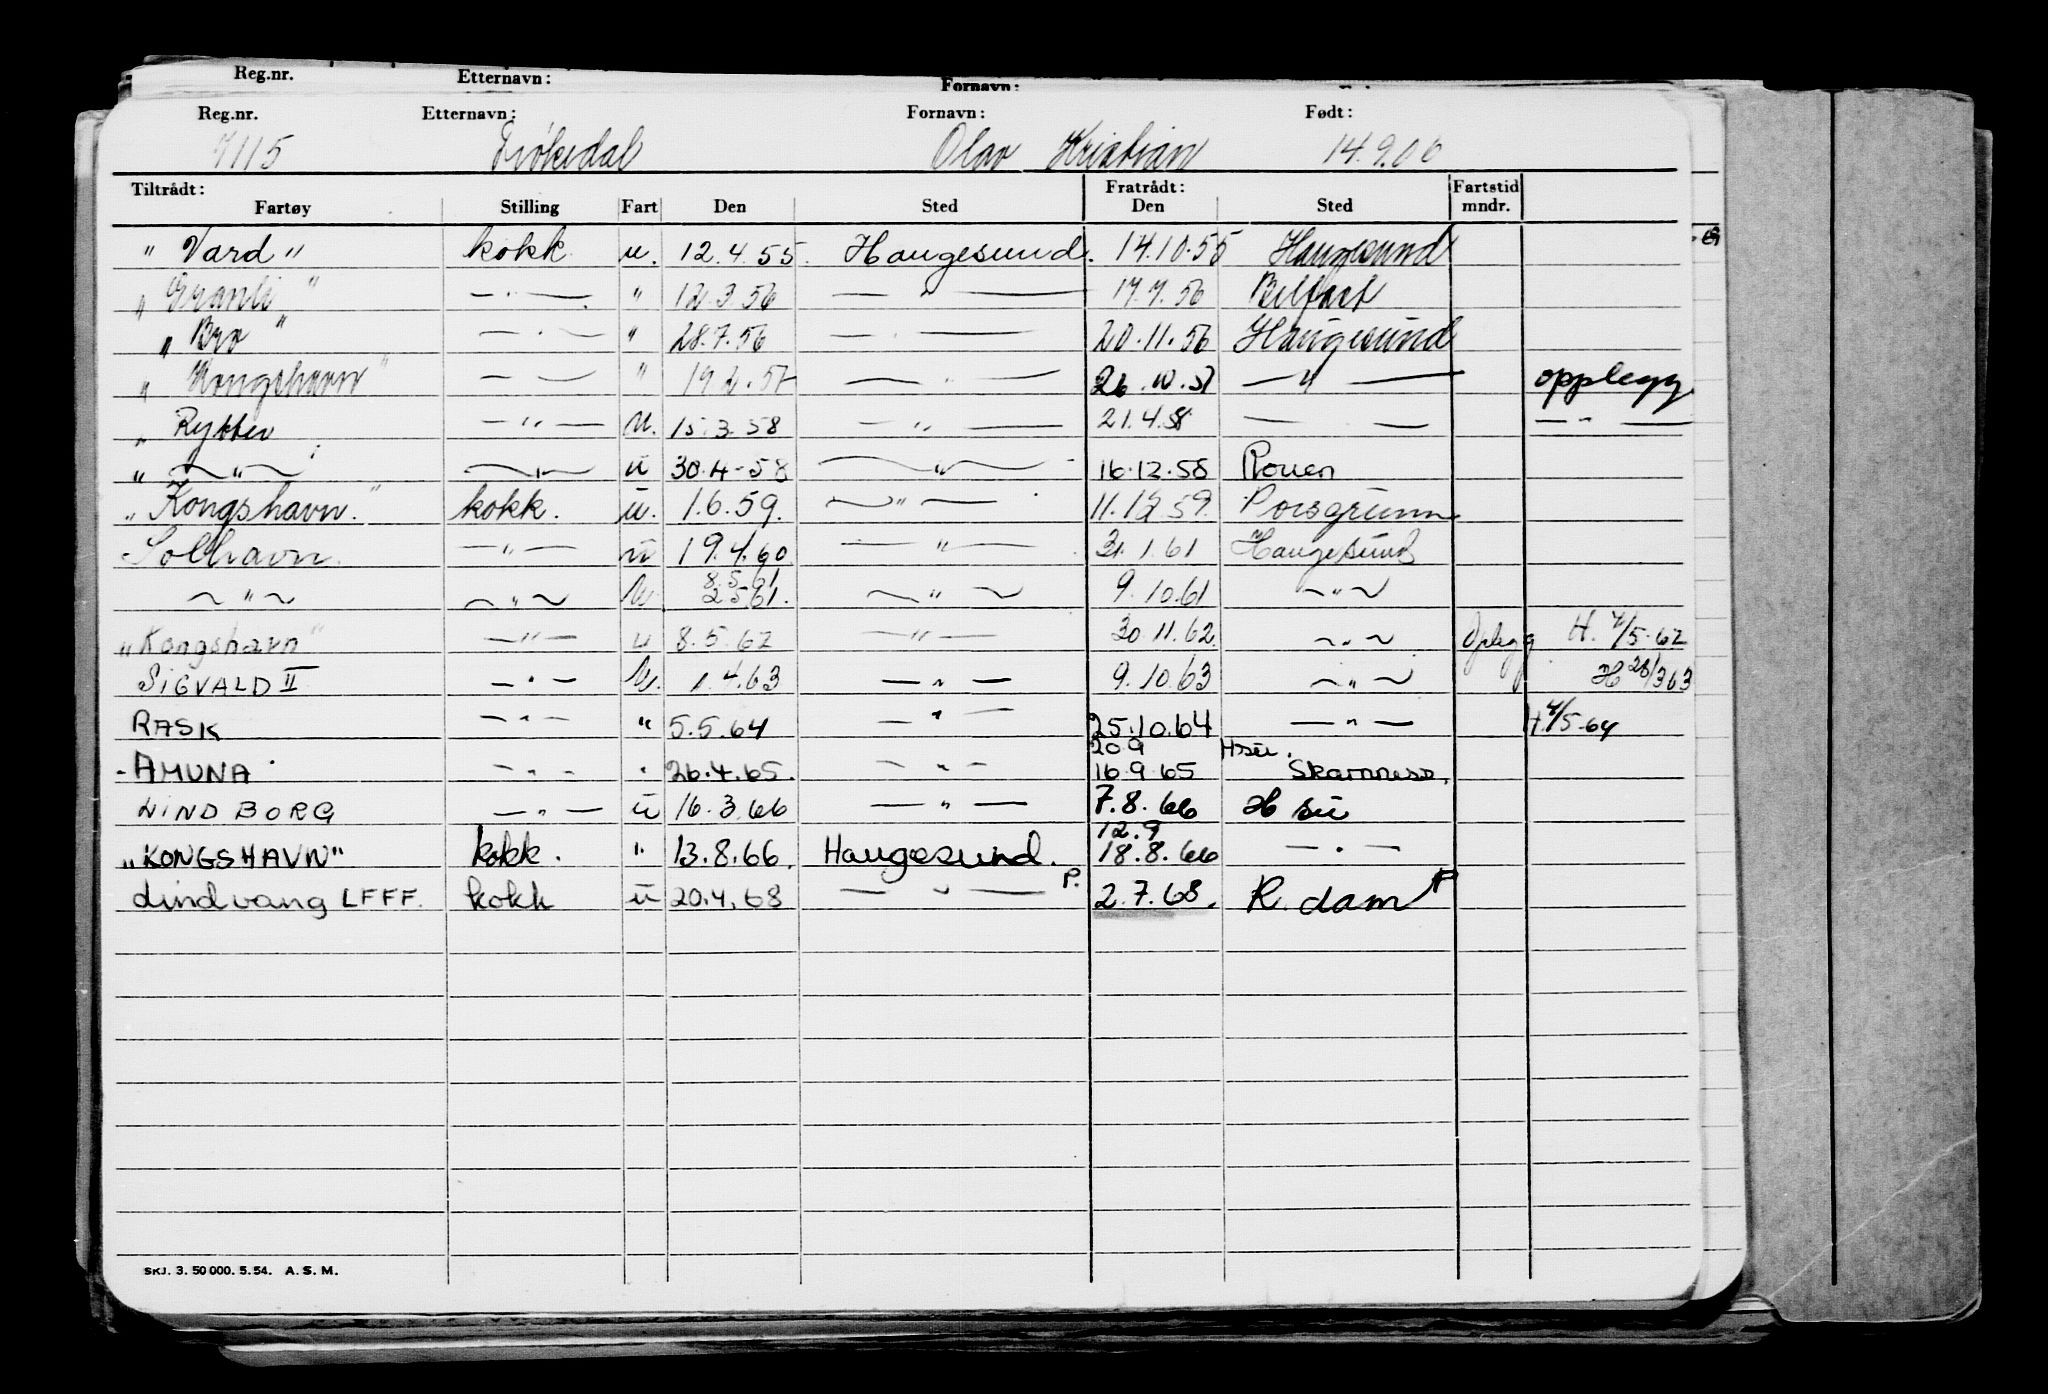 Reg.nr. Etternavn: Fornavn:
Reg.nr. Etternavn: Fornavn: Født:
7115 Olav Kristian 14.9.06
Tiltrådt: Fratrådt: Fartstid
Fartøy Stilling Fart Den Sted Den Sted mndr.
" Vard " kokk u. 12.4.55. Haugesund. 14.10.55 Haugesund
" Granli " — " — " 12.3.56 — " — 17.7.56 Belfast
" Bro " — " — " 28.7.56 — 20.11.56 Haugesund
" Kongshavn " — " — " — " — 26.10.57 — " — opplegg
" Rytter — " — u. 15.3.58 — " — 21.4.58 — — — " —
" — " — — " — u 30.4-58 — " — 16.12.58 Rouen
" Kongshavn. " kokk. u. 1.6.59. — " — 11.12.59. Porsgrunn
Solhavn. — " — u 19.4.60. — " — 31.1.61 Haugesund
8.5.61
— " — — " — u. 2.5.61. — " — 9.10.61 — " —
" Kongshavn " — " — u 8.5.62 — " — 30.11.62. — " — Oplegg H. 4/5-62
SIGVALD II — " — u. 1.4.63 — " — 9.10.63 — " — H 28/3 63
RASK — " — " 5.5.64 — " — 25.10.64 — " — H. 4/5-64
20.9 Hsu.
- AMUNA — " — " 26.4.65. — " — 16.9.65
LINDBORG — " — u 16.3.66 — " — 7.8.66 H su
12.9
"KONGSHAVN" kokk. " 13.8.66. Haugesund. 18.8.66 — " —
Lindvang LFFF. kokk u 20.4.68 — " — P. 2.7.68. R.dam P
SKJ. 3. 50 000. 5. 54. A. S. M.